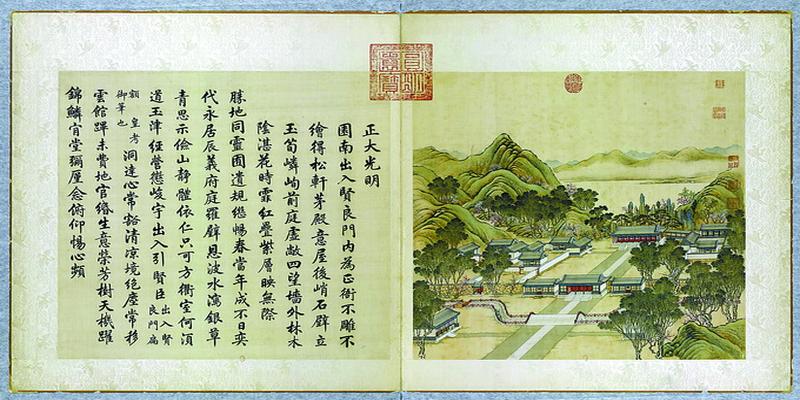 正大光明
園南出入賢良門內為正衙不雕不
繪得松軒茅殿意屋後峭石壁立
玉筍嶙峋前庭虛敞四望墻外林木
陰湛花時霏紅疊紫層映無際
勝地同靈囿遺規繼暢春當年成不日奕
代永居辰義府庭羅壁恩波水瀉銀草
青思示儉山靜體依仁只可方衢室何須
道玉津經營懲峻宇出入引賢臣 出入賢良門扁
額 皇考御筆也 洞達心常豁清涼境絕塵常移
雲館蹕未費地官緡生意榮芳樹天機躍
錦鱗宜堂彌厪念俯仰暢心頻